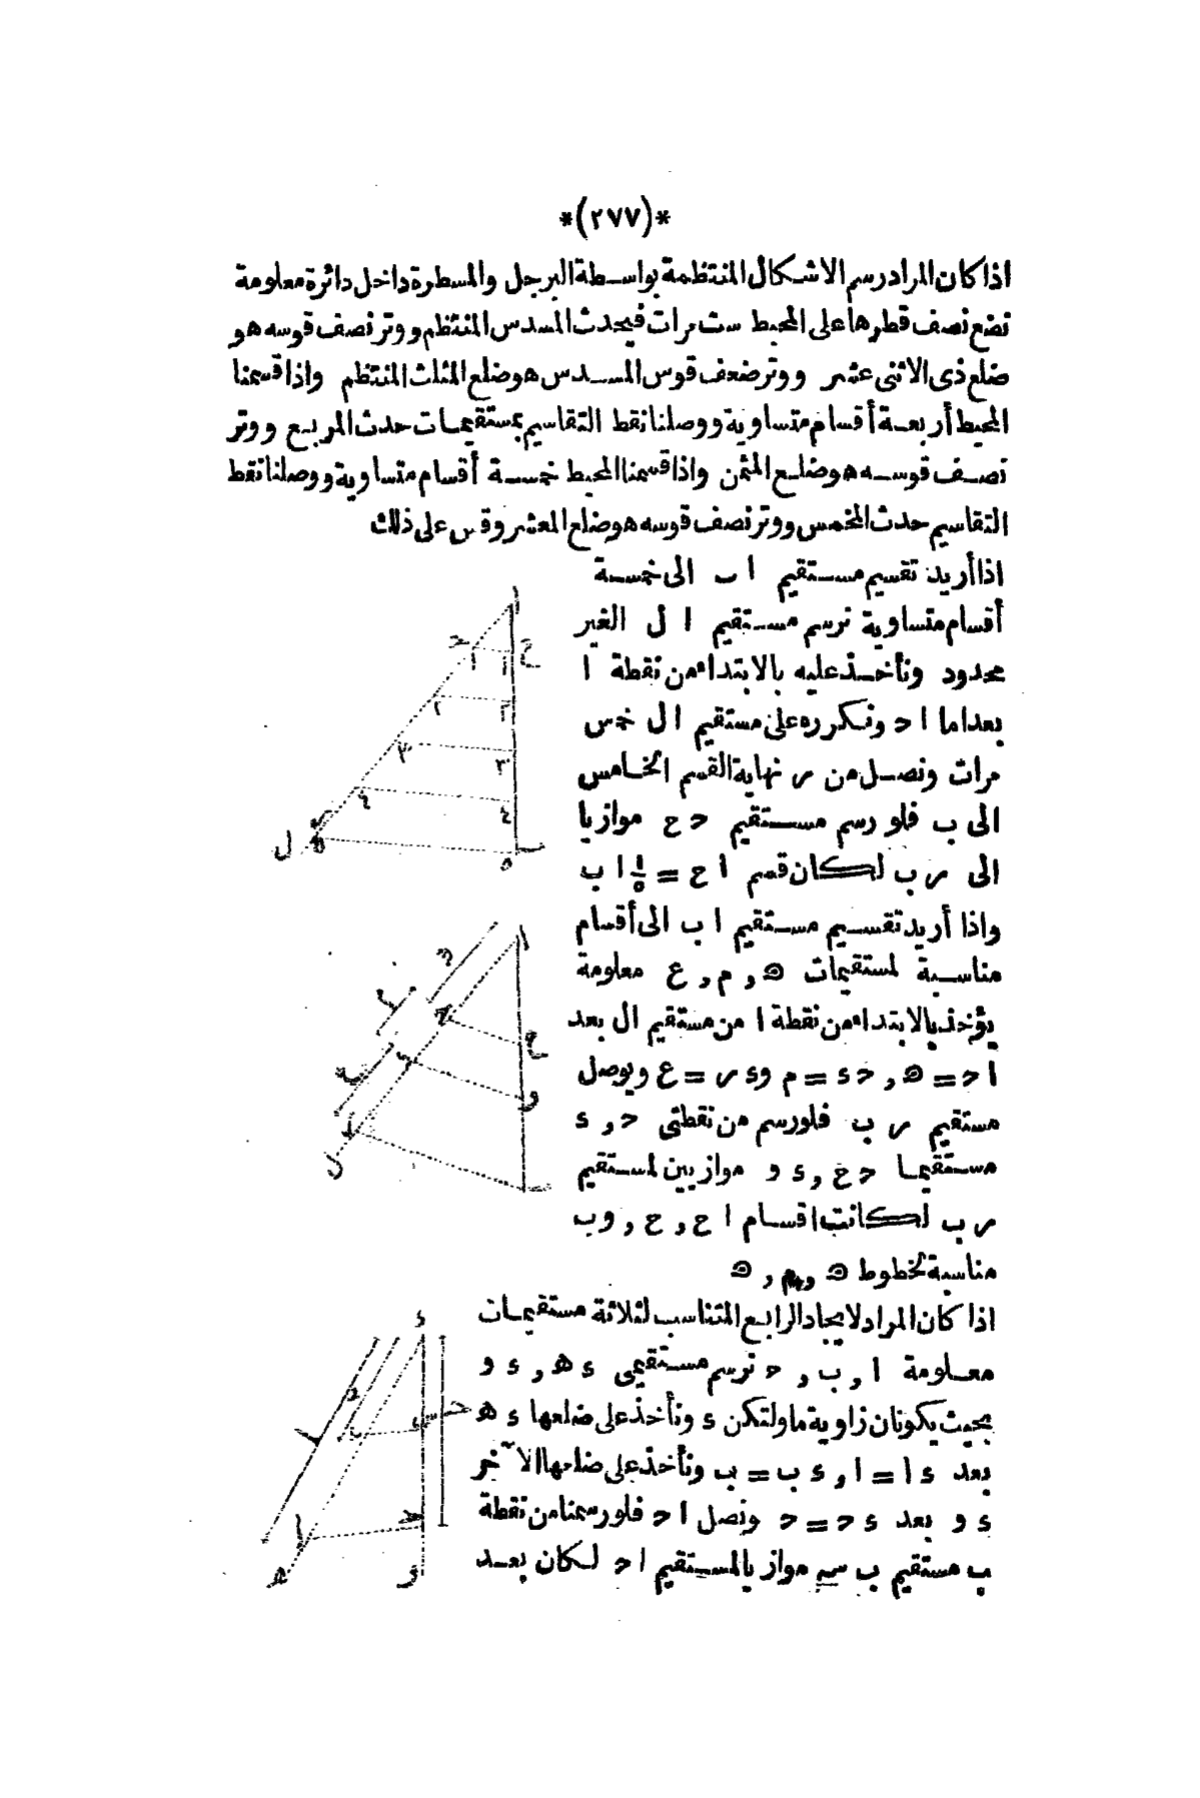 *(٢٧٧)*
اذا كان المراد رسم الاشكال المنتظمة بواسطة البرجل والمسطرة داخل دائرة معلومة
نضع نصف قطرها على المحيط ست مرات فيحدث المسدس المنتظم ووتر نصف قوسه هو
ضلع ذى الاثنى عشر ووتر ضعف قوس المسدس هو ضلع المثلث المنتظم واذا قسمنا
المحيط أربعة أقسام متساوية ووصلنا نقط التقاسيم بمستقيمات حدث المربع ووتر
نصف قوسه هو ضلع المثمن واذا قسمنا المحيط خمسة أقسام متساوية ووصلنا نقط
التقاسيم حدث المخمس ووتر نصف قوسه هو ضلع المعشر وقس على ذلك
اذا أريد تقسيم مستقيم ا ب الى خمسة
أقسام متساوية نرسم مستقيم ا ل الغير
محدود ونأخذ عليه بالابتداء من نقطة ا
بعدا ما ا ح ونكرره على مستقيم ا ل خمس
مرات ونصل من ر نهاية القسم الخامس
الى ب فلو رسم مستقيم ح ع موازيا
الى ر ب لكان قسم ا ع = ١/٥ ا ب
واذا أريد تقسيم مستقيم ا ب الى أقسام
مناسبة لمستقيمات ه و م و ع معلومة
يؤخذ بالابتداء من نقطة ا من مستقيم ال بعد
ا ح = ه و ح ء = م و ء ر = ع ويوصل
مستقيم ر ب فلو رسم من نقطتى ح و ء
مستقيما ح ع و ء و موازيين لمستقيم
ر ب لكانت اقسام ا ع و ع و و ب
مناسبة لخطوط ه و م و ه
اذا كان المراد لايجاد الرابع المتناسب لثلاثة مستقيمات
معلومة ا و ب و ح نرسم مستقيمى ء ه و ء و
بحيث يكونان زاوية ما ولتكن ء ونأخذ على ضلعها ء ه
بعد ء ا = ا و ء ب = ب ونأخذ على ضلعها الآخر
ء و بعد ء ح = ح ونصل ا ح فلو رسمنا من نقطة
ب مستقيم ب سه موازيا لمستقيم ا ح لكان بعد